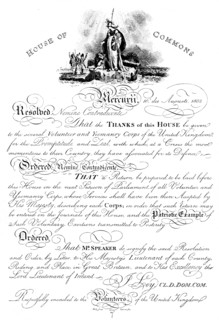 HOUSE OF COMMONS
Mercurij 10 die Augusti 1803
Resolved Nemine Contradicente,
That the THANKS of this HOUSE be given
to the several Volunteer and Yeomanry Corps of the United Kingdom
for the Promptitude and Zeal with which, at a Crisis the most
momentous to their Country, they have associated for its Defence
Ordered Nemine Contradicente
THAT a Return be prepared to be laid before
this House in the next Session of Parliament of all Volunteer and
Yeomanry Corps whose Services shall have been then accepted by
His Majesty, describing each Corps, in order that such Return may
be entered on the Journals of this House, and the Patriotic Example
of such Voluntary Exertions transmitted to Posterity
Ordered
That Mr SPEAKER do signify the said Resolution
and Order by Letter to His Majesty's Lieutenant of each County,
Riding and Place in Great Britain, and to His Excellency the
Lord Lieutenant of Ireland
J. Ley, CL. D. DOM. COM.
Respectfully inscribed to the Volunteers of the United Kingdom